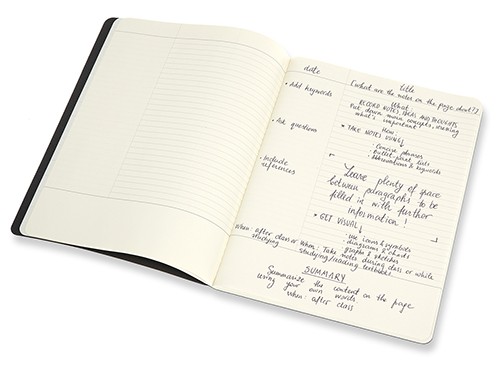 date
title
(what are the notes on the page about?)
• Add keywords
What:
RECORD NOTES, IDEAS AND THOUGHTS
Put down main concepts, owning
what's important
• Ask questions
How:
• TAKE NOTES USING
- Concise phrases
- Bullet-point lists
- Abbreviations & keywords
• Include
references
Leave plenty of space
between paragraphs to be
filled in with further
information!
• GET VISUAL
- use icons & symbols
- diagrams & charts
- graphs & sketches
When: after class or
studying
When: Take notes during class or while
studying/reading textbooks.
SUMMARY
Summarize the content on the page
using your own words.
When: after class